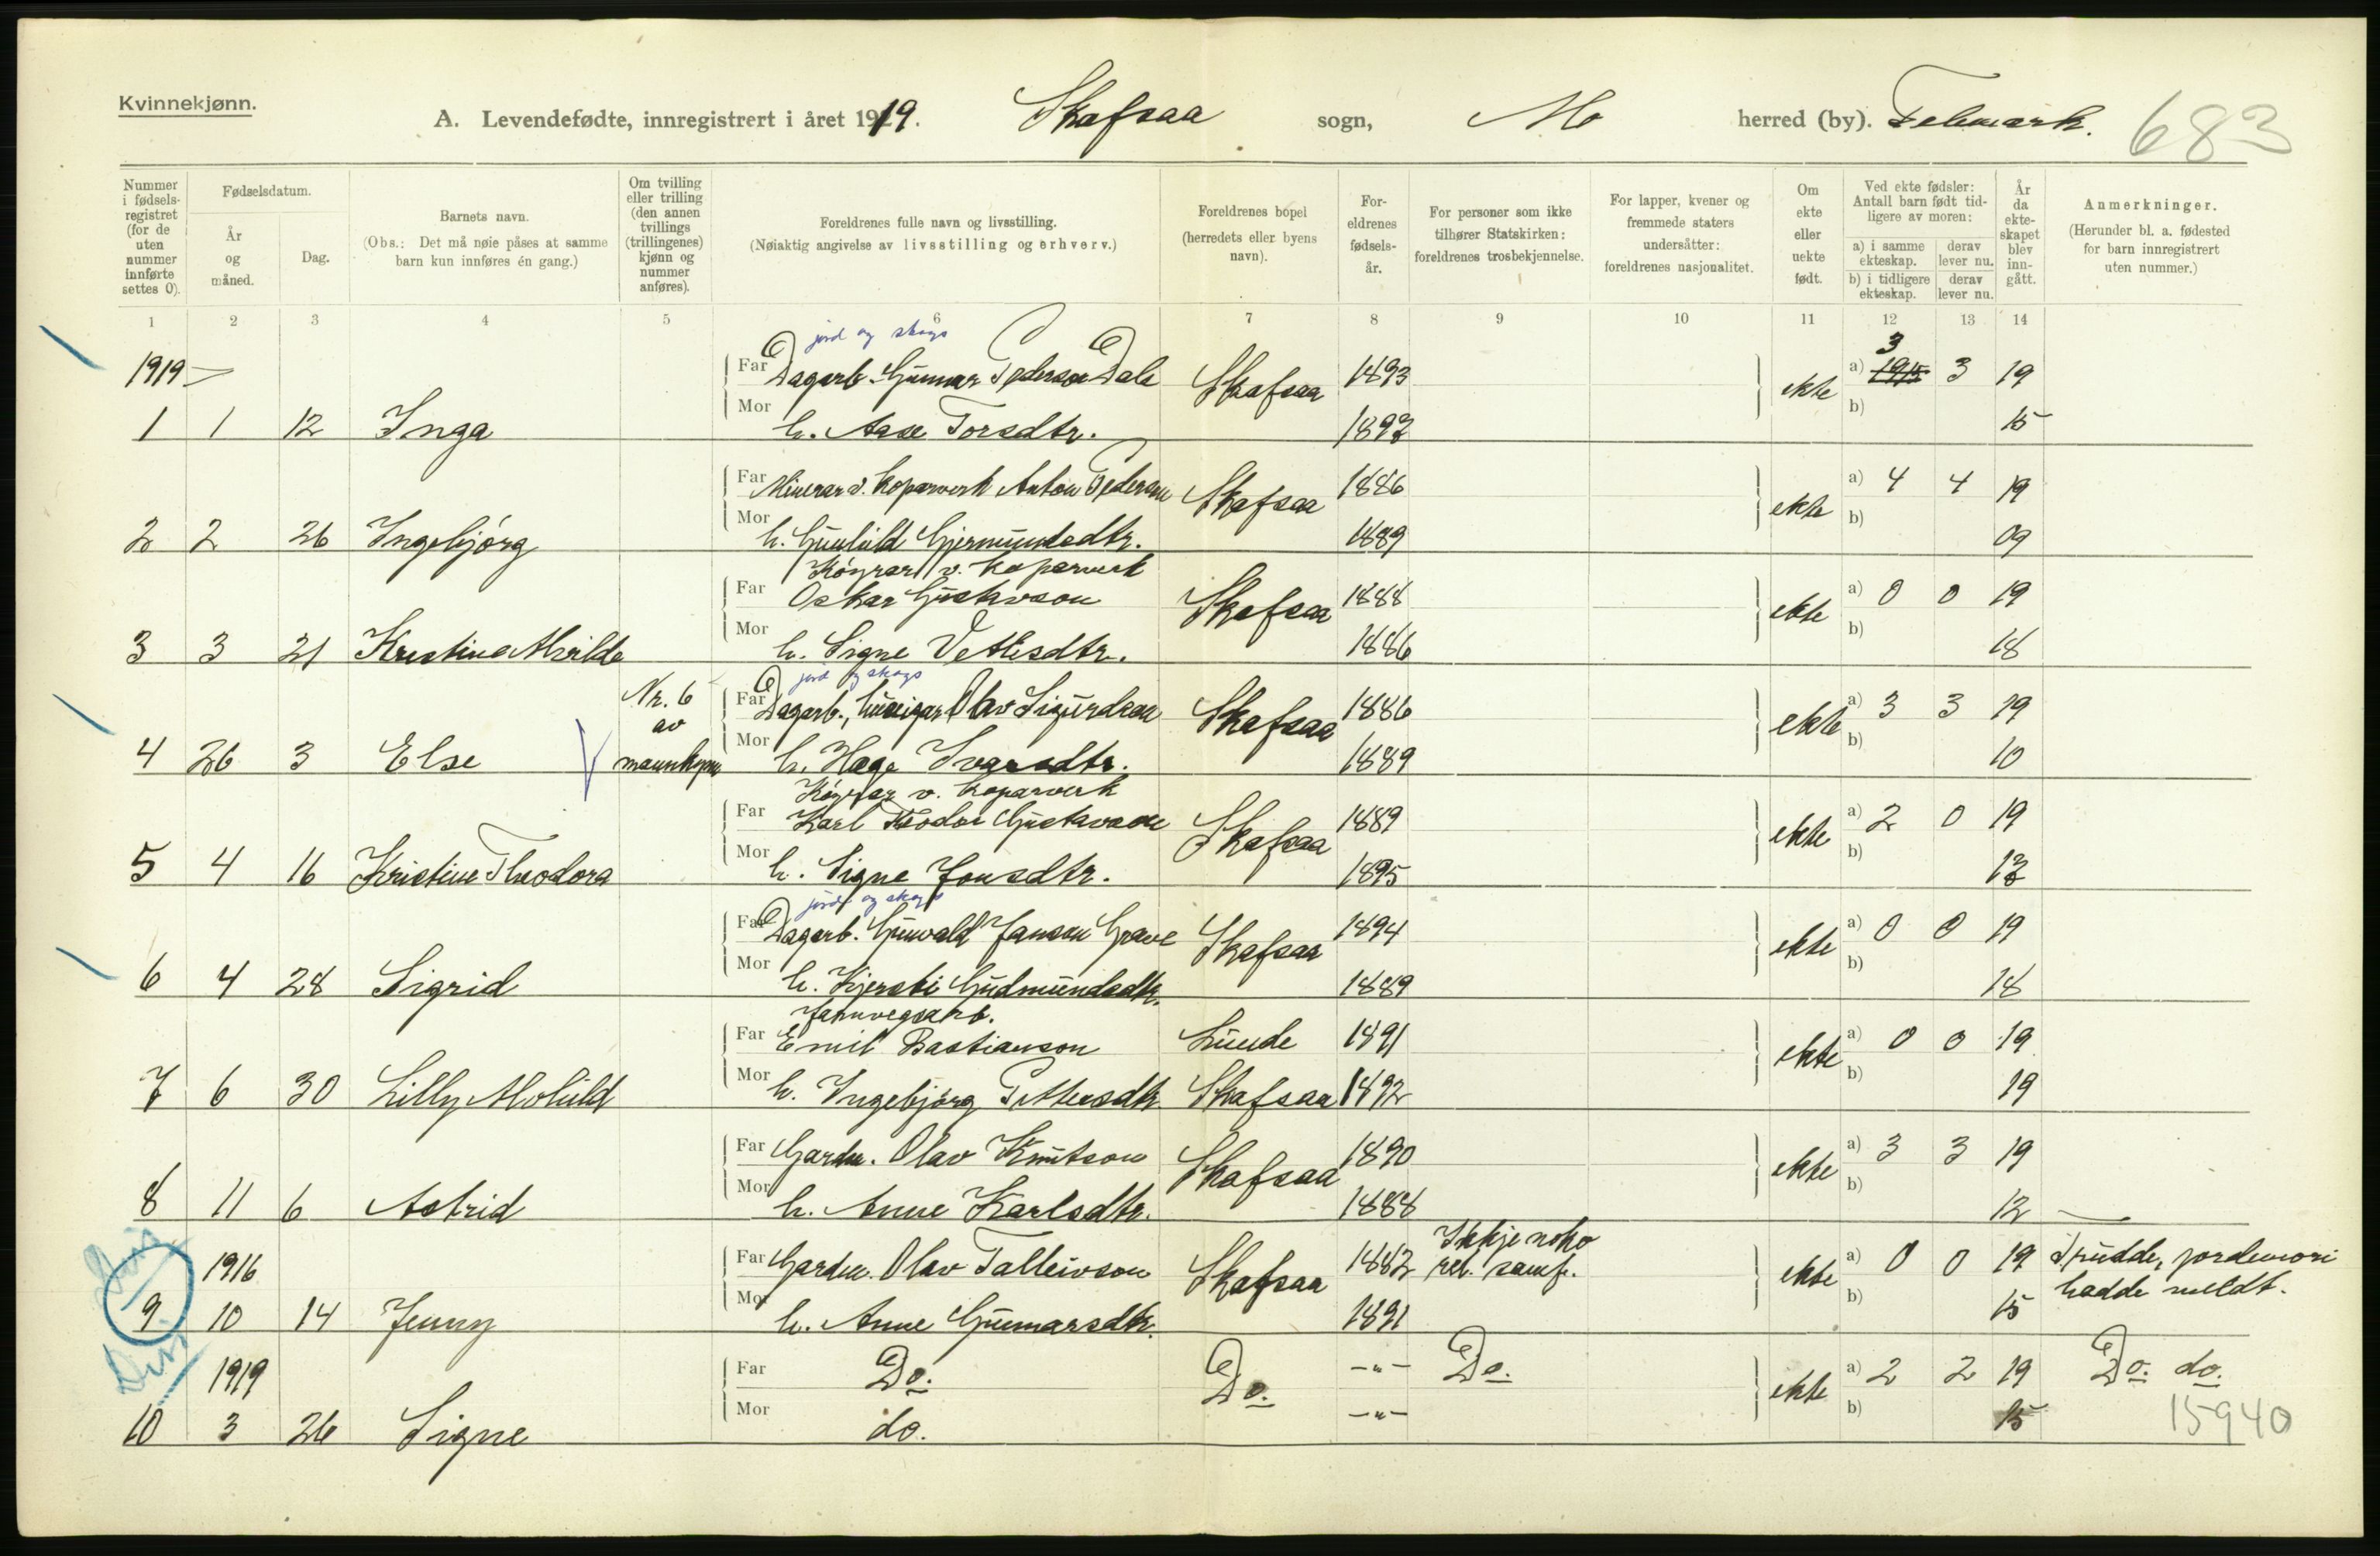 Kvinnekjønn.
A. Levendefødte, innregistrert i året 1919. Skafsaa sogn, Mo herred (by). Telemark. 683
Nummer i fødsels-registret (for de uten nummer innførte settes 0).
Fødselsdatum.
År og måned.
Dag.
Barnets navn.
(Obs.: Det må nøie påses at samme barn kun innføres én gang.)
Om tvilling eller trilling (den annen tvillings (trillingenes) kjønn og nummer anføres).
Foreldrenes fulle navn og livsstilling.
(Nøiaktig angivelse av livsstilling og erhverv.)
Foreldrenes bopel (herredets eller byens navn).
For-eldrenes fødsels-år.
For personer som ikke tilhører Statskirken: foreldrenes trosbekjennelse.
For lapper, kvener og fremmede staters undersåtter: foreldrenes nasjonalitet.
Om ekte eller uekte født.
Ved ekte fødsler: Antall barn født tid-ligere av moren:
a) i samme ekteskap. derav lever nu.
b) i tidligere ekteskap. derav lever nu.
År da ekte-skapet blev inn-gått.
Anmerkninger.
(Herunder bl. a. fødested for barn innregistrert uten nummer.)
1 2 3 4 5 6 7 8 9 10 11 12 13 14
jord og skogs
1919 Far Dagarb. Gunnar Pederson Dale Skafsaa 1893 ekte a) 1915 3 3 19
1 1 12 Inga Mor h. Aase Torsdtr. 1897 b) 15
Far Minerar v. Koparverk Anton Pederson Skafsaa 1886 ekte a) 4 4 19
2 2 26 Ingebjörg Mor h. Gunhild Gjermundsdtr. 1889 b) 09
Köyrar v. Koparverk
Far Oskar Gustavson Skafsaa 1888 ekte a) 0 0 19
3 3 21 Kristine Alvilde Mor h. Signe Vetlesdtr. 1886 b) 18
jord og skogs
Nr. 6 av mannkjönn Far Dagarb., Olav Sigurdson Skafsaa 1886 ekte a) 3 3 19
4 26 3 Else Mor h. Hæge Ivarsdtr. 1889 b) 10
Köyrar v. Koparverk
Far Karl Teodor Gustavson Skafsaa 1889 ekte a) 2 0 19
5 4 16 Kristine Theodora Mor h. Signe Jonsdtr. 1895 b) 13
jord og skogs
Far Dagarb. Gunvald Janson Grave Skafsaa 1894 ekte a) 0 0 19
6 4 28 Sigrid Mor h. Kjersti Gudmundsdtr. 1889 b) 18
Jarnvegsarb.
Far Emil Bastianson Lunde 1891 ekte a) 0 0 19
7 6 30 Lilly Alohild Mor h. Ingebjörg Pettersdtr. Skafsaa 1892 b) 19
Far Gardm. Olav Knutson Skafsaa 1890 ekte a) 3 3 19
8 11 6 Astrid Mor h. Anne Karlsdtr. 1888 b) 12
1916 Far Gardm. Olav Talleivson Skafsaa 1882 Ikkje noko rel. samf. ekte a) 0 0 19 Trudde, jordemori hadde meldt.
9 10 14 Jenny Mor h. Anne Gunnarsdtr. 1891 b) 15
Diss
1919 Far Do. Do. -"- Do. ekte a) 2 2 19 Do. do.
10 3 26 Signe Mor do. -"- b) 15
15940